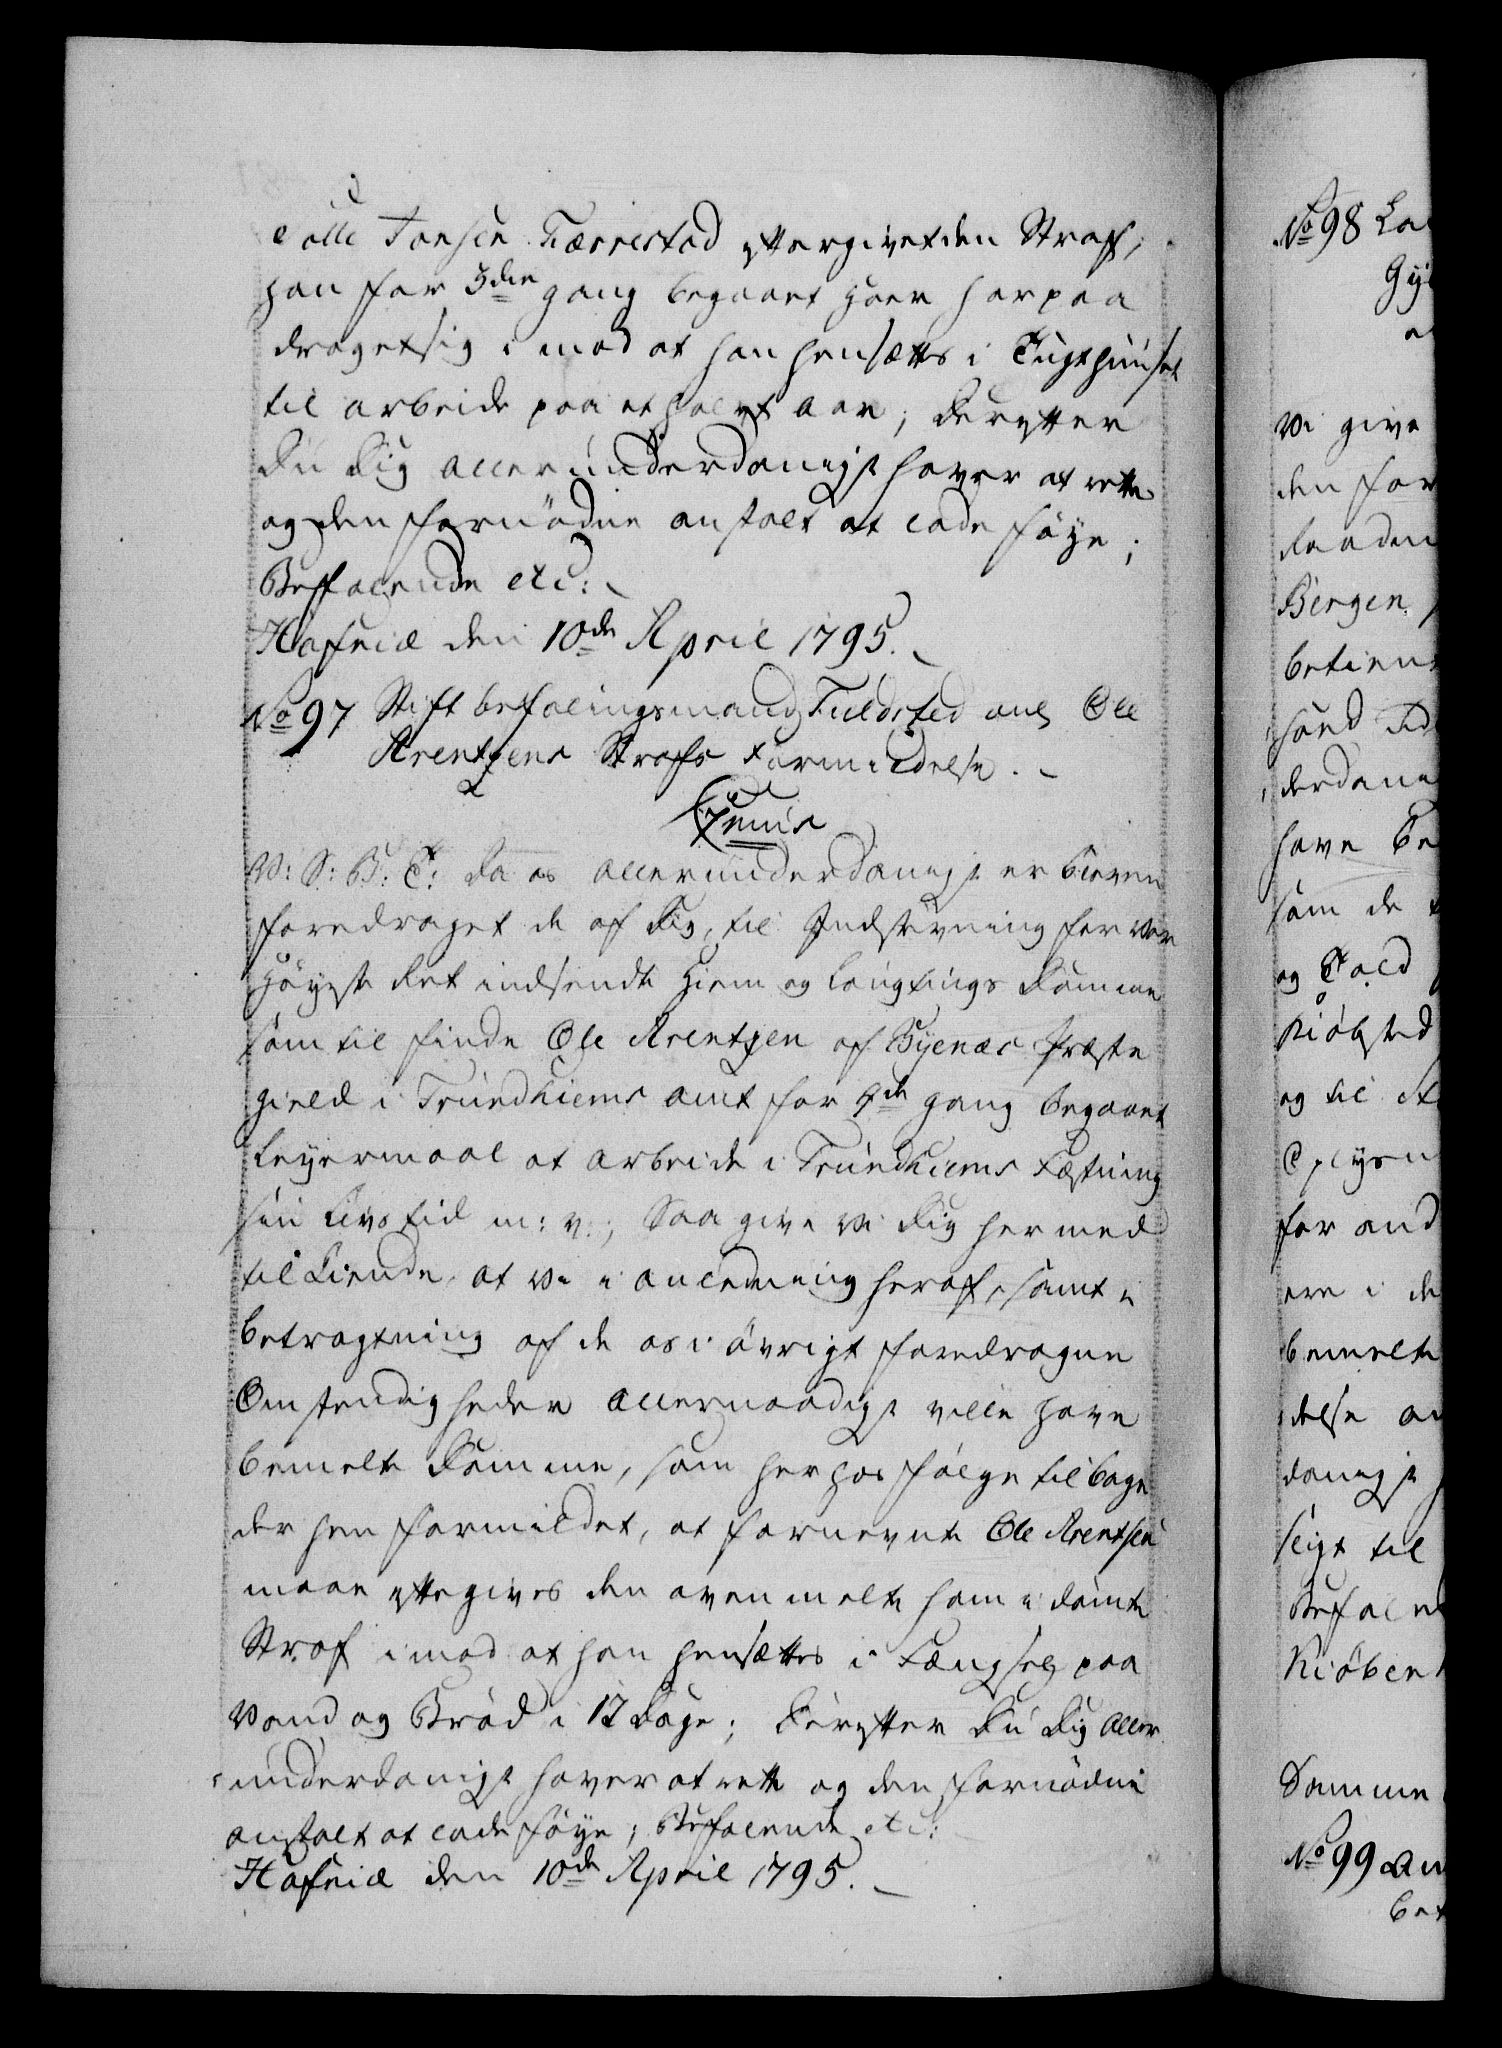 Tolle Jonsen Tærrestad eftergivet den Straf,
han for 3die gang begaaet Hoer har paa
draget sig imod at han hensættes i Tugthuuset
til arbeide paa et halvt Aar; Derefter
Du Dig allerunderdanigst haver at rette
og den fornødne anstalt at lade føye;
Befalende etc:
Hafniæ den 10de April 1795.
No 97 Stiftbefalingsmand Fieldsted ang Ole
Arentzens Strafs Formildelse.
Gemis
V: S: B: T: Da os allerunderdanigst er bleven
foredraget de af Dig, til Indstevning for vor
Høyeste Ret indsendte Hiem og Laugtings Domme
som til finde Ole Arentzen af Byenæs Præste
gield i Trundhiems amt for 4de gang begaaet
Leyermaal at arbeide i Trundhiems Fæstning
sin Livs tid m: v:, Saa give Vi Dig hermed
tilkiende, at Vi i anledning heraf, samt i
betragtning af de os i øvrigt foredragne
Omstendigheder allernaadigst ville have
bemelte Domme, som herhos følge tilbage
der hen formildet, at fornevnte Ole Arentsen
maae eftegives den ovenmelte ham i dømte
Straf imod at han hensættes i Fængsel paa
Vand og Brød i 12 Dage; Derefter Du Dig aller
underdanigst haver at rette og den fornødne
anstalt at lade føye; Befalende etc:
Hafniæ den 10de April 1795.
No 98
Vi give
den for
Bergen
have
som de
og Told
og til
for and
ere i de
bemelte
delse
danigst
til
Befalen
Kiøben
Samme
No 99